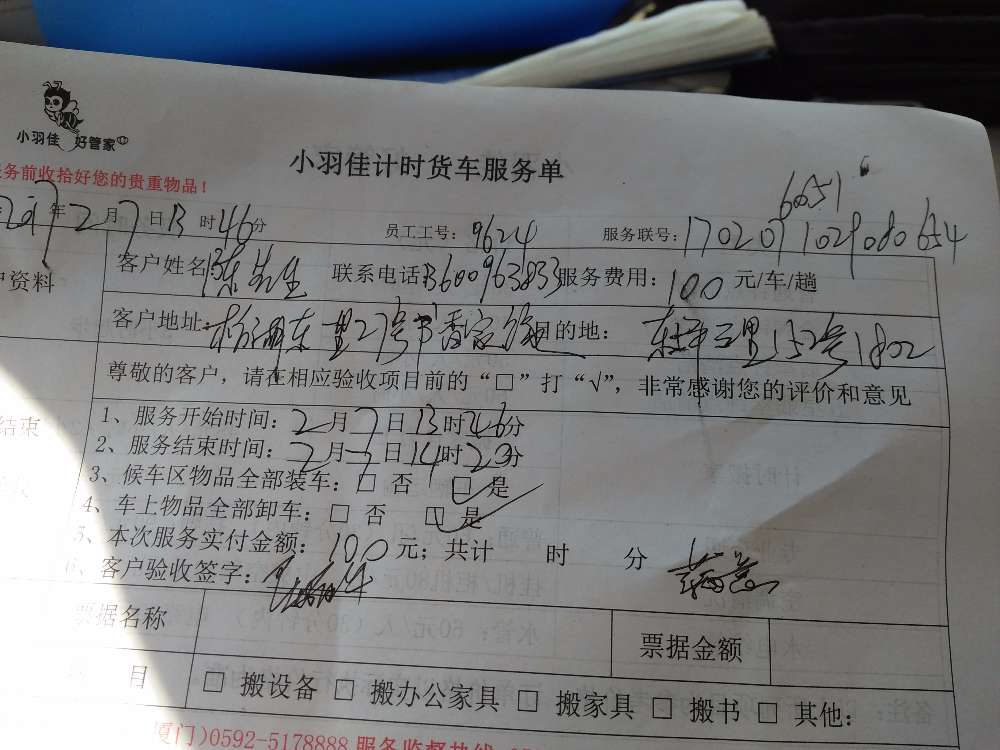 小羽佳 好管家
小羽佳计时货车服务单
务前收拾好您的贵重物品！
6651
年2月7日13时46分 员工工号：9624 服务联号：170207102908 0654
户资料
客户姓名 陈先生 联系电话 13600963833 服务费用：100元/车/趟
客户地址： 27号书香 目的地： 里152号1802
尊敬的客户，请在相应验收项目前的“□”打“√”，非常感谢您的评价和意见
1、服务开始时间：2月7日13时46分
2、服务结束时间：2月7日14时20分
结束
3、候车区物品全部装车：□ 否 □ 是
4、车上物品全部卸车：□ 否 □ 是
5、本次服务实付金额：100元；共计 时 分
6、客户验收签字：
票据名称 票据金额
目 □ 搬设备 □ 搬办公家具 □ 搬家具 □ 搬书 □ 其他：
厦门)0592-5178888 服务监督热线